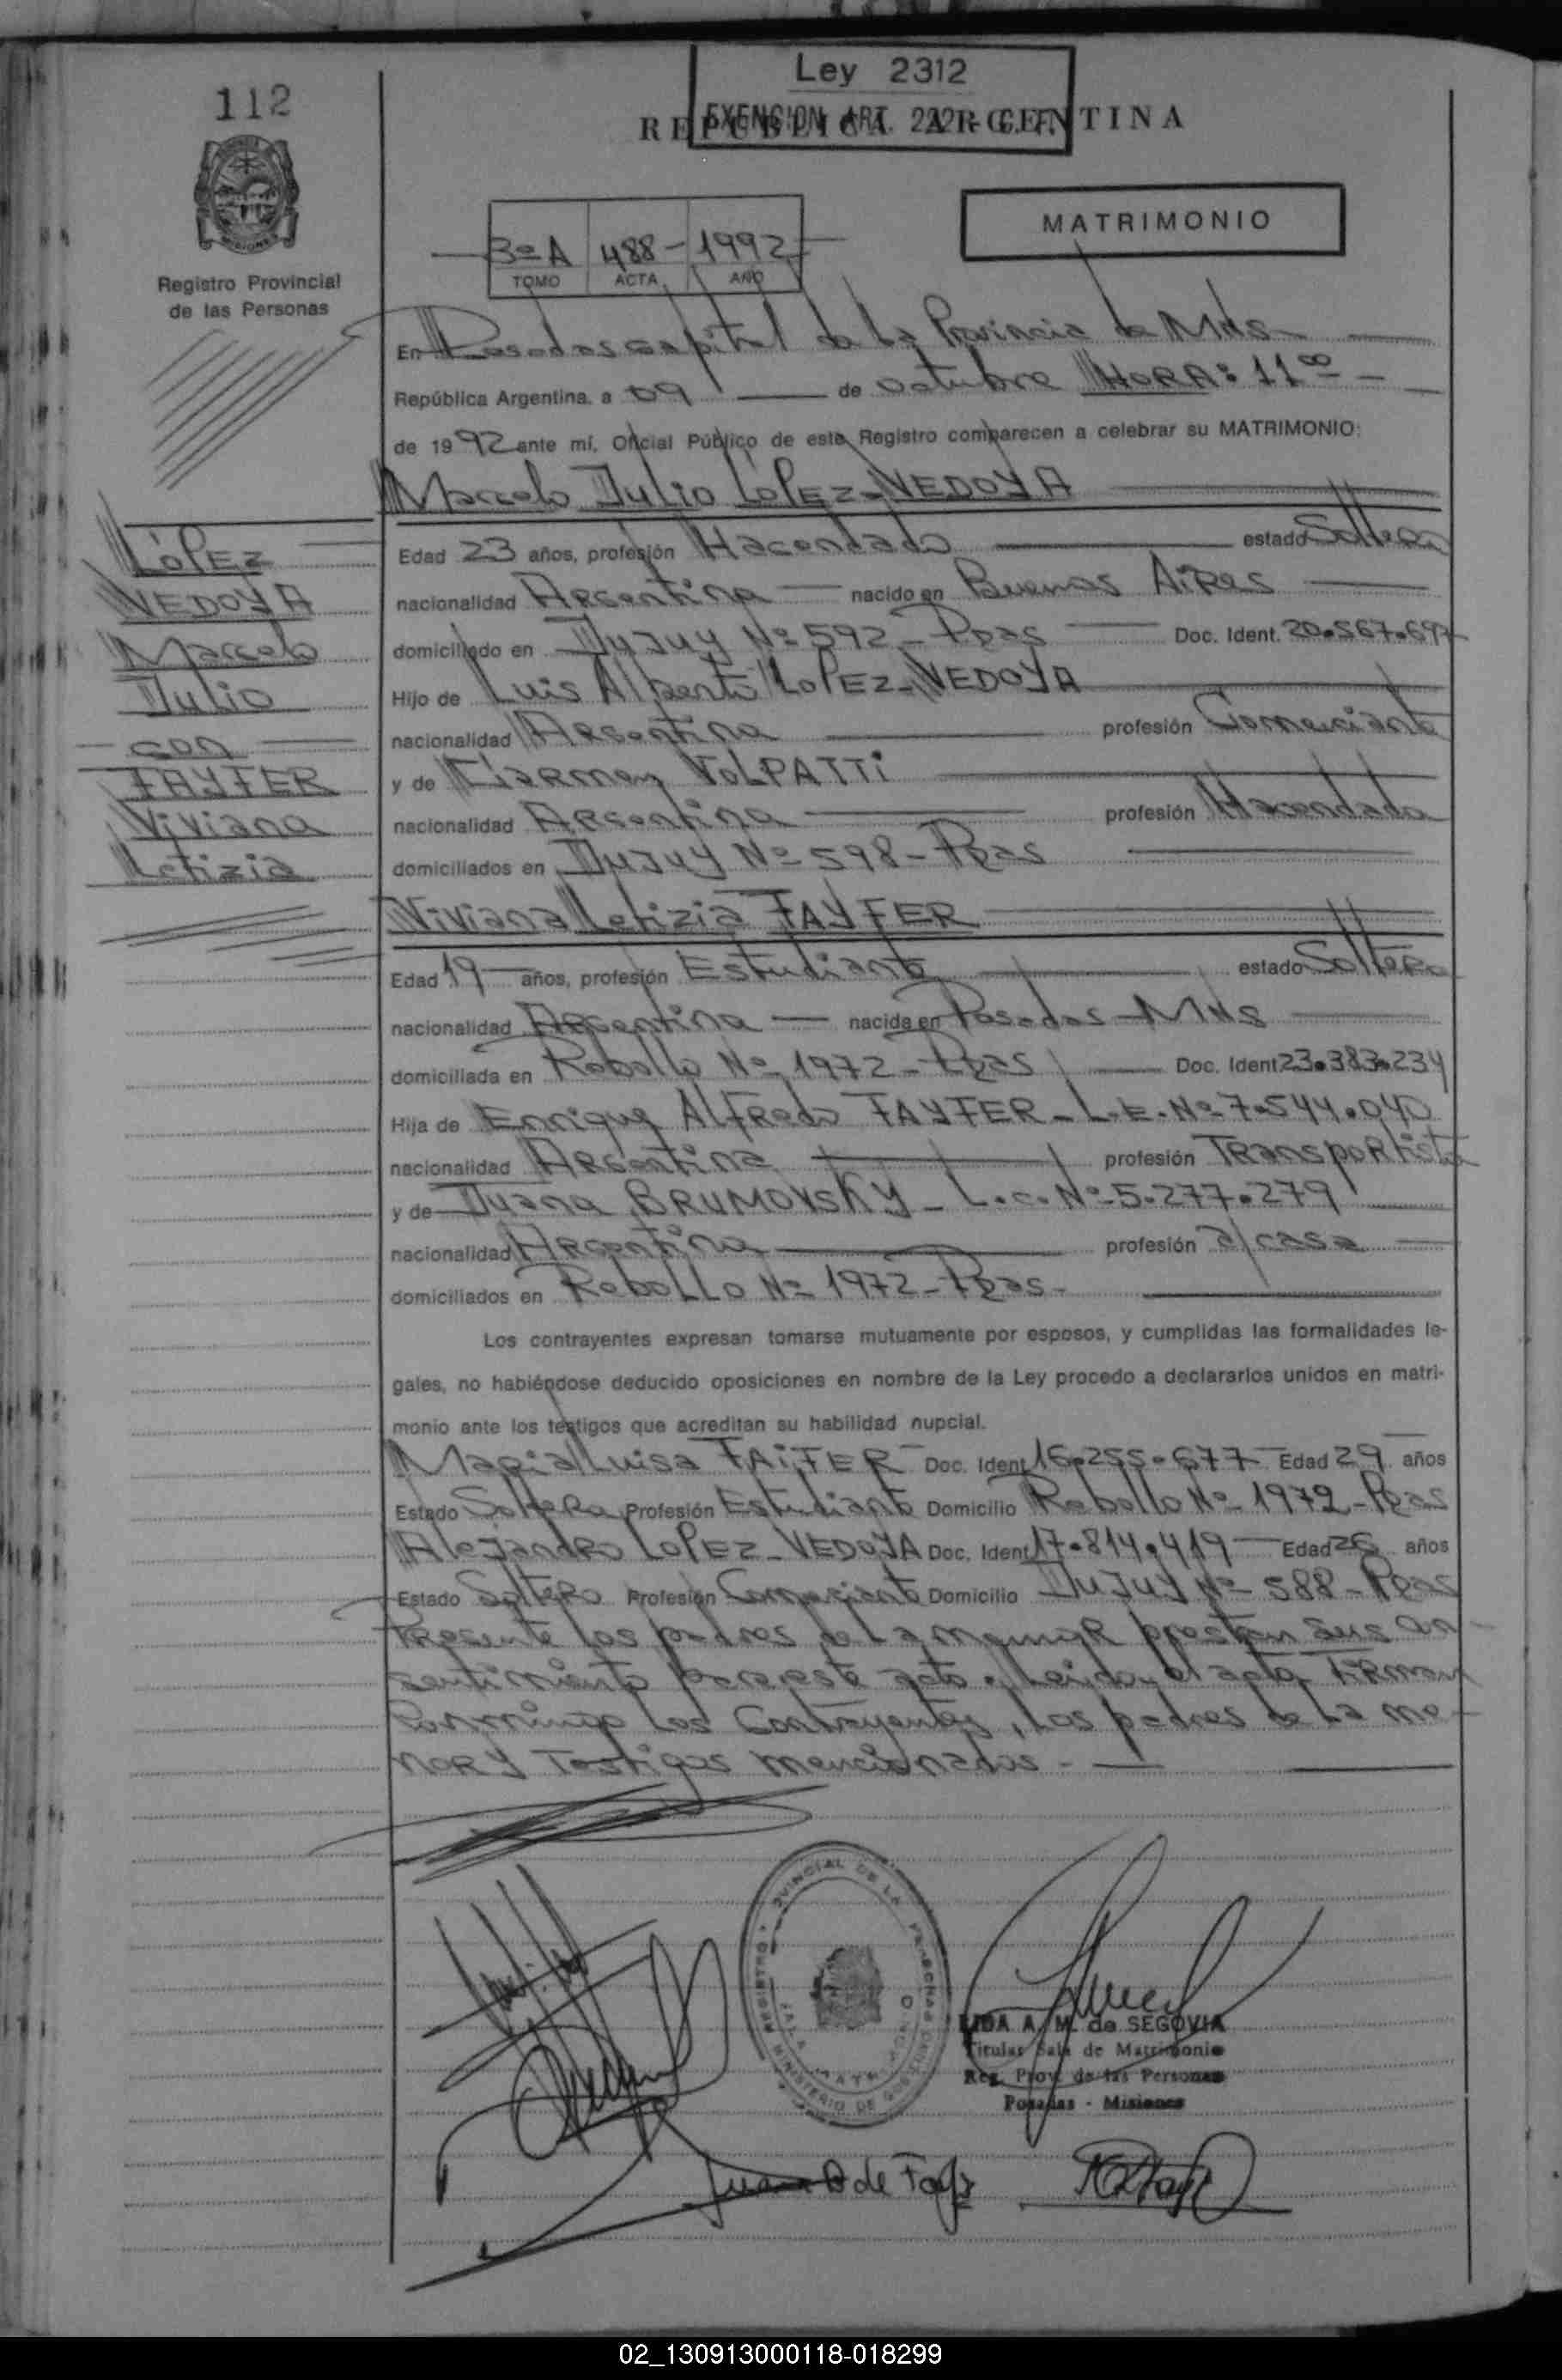 112
Ley 2312
EXENCION ART. 222 - C.F.
REPUBLICA ARGENTINA
MISIONES
Registro Provincial
de las Personas
3º A 488 - 1992
TOMO ACTA AÑO
MATRIMONIO
En Posadas capital de la Provincia de Mnes
República Argentina, a 09 de octubre HORA: 11 00
de 1992 ante mí, Oficial Público de este Registro comparecen a celebrar su MATRIMONIO:
Marcelo Julio LóPEZ-VEDOYA
LóPEZ
VEDOYA
Marcelo
Julio
con
FAYFER
Viviana
Letizia
Edad 23 años, profesión Hacendado estado Soltero
nacionalidad Argentina nacido en Buenos Aires
domiciliado en Jujuy Nº 592 - Pdas Doc. Ident. 20.567.697
Hijo de Luis Alberto LOPEZ-VEDOYA
nacionalidad Argentina profesión Comerciante
y de Carmen VOLPATTi
nacionalidad Argentina profesión Hacendada
domiciliados en Jujuy Nº 598 - Pdas
Viviana Letizia FAYFER
Edad 19 años, profesión Estudiante estado Soltera
nacionalidad Argentina nacida en Posadas - Mnes
domiciliada en Rebollo Nº 1972 - Pdas Doc. Ident 23.383.234
Hija de Enrique Alfredo FAYFER - L.E. Nº 7.544.040
nacionalidad Argentina profesión Transportista
y de Juana BRUMOVSKY - L.C. Nº 5.277.279
nacionalidad Argentina profesión a/casa
domiciliados en Rebollo Nº 1972 - Pdas -
Los contrayentes expresan tomarse mutuamente por esposos, y cumplidas las formalidades le-
gales, no habiéndose deducido oposiciones en nombre de la Ley procedo a declararlos unidos en matri-
monio ante los testigos que acreditan su habilidad nupcial.
Maria Luisa FAiFER Doc. Ident 16.255.677 Edad 29 años
Estado Soltera Profesión Estudiante Domicilio Rebollo Nº 1972 - Pdas
Alejandro LOPEZ-VEDOYA Doc. Ident 17.814.419 Edad 26 años
Estado Soltero Profesión Comerciante Domicilio Jujuy Nº 588 - Pdas
Presente los padres de la menor prestan sus con-
sentimiento para este acto. Leida el acta firman
conmigo los Contrayentes, los padres de la me-
nor y Testigos mencionados -
LIDA A. M. de SEGOVIA
Titular Sala de Matrimonio
Reg. Prov. de las Personas
Posadas - Misiones
Juana B de Fayf
02_130913000118-018299